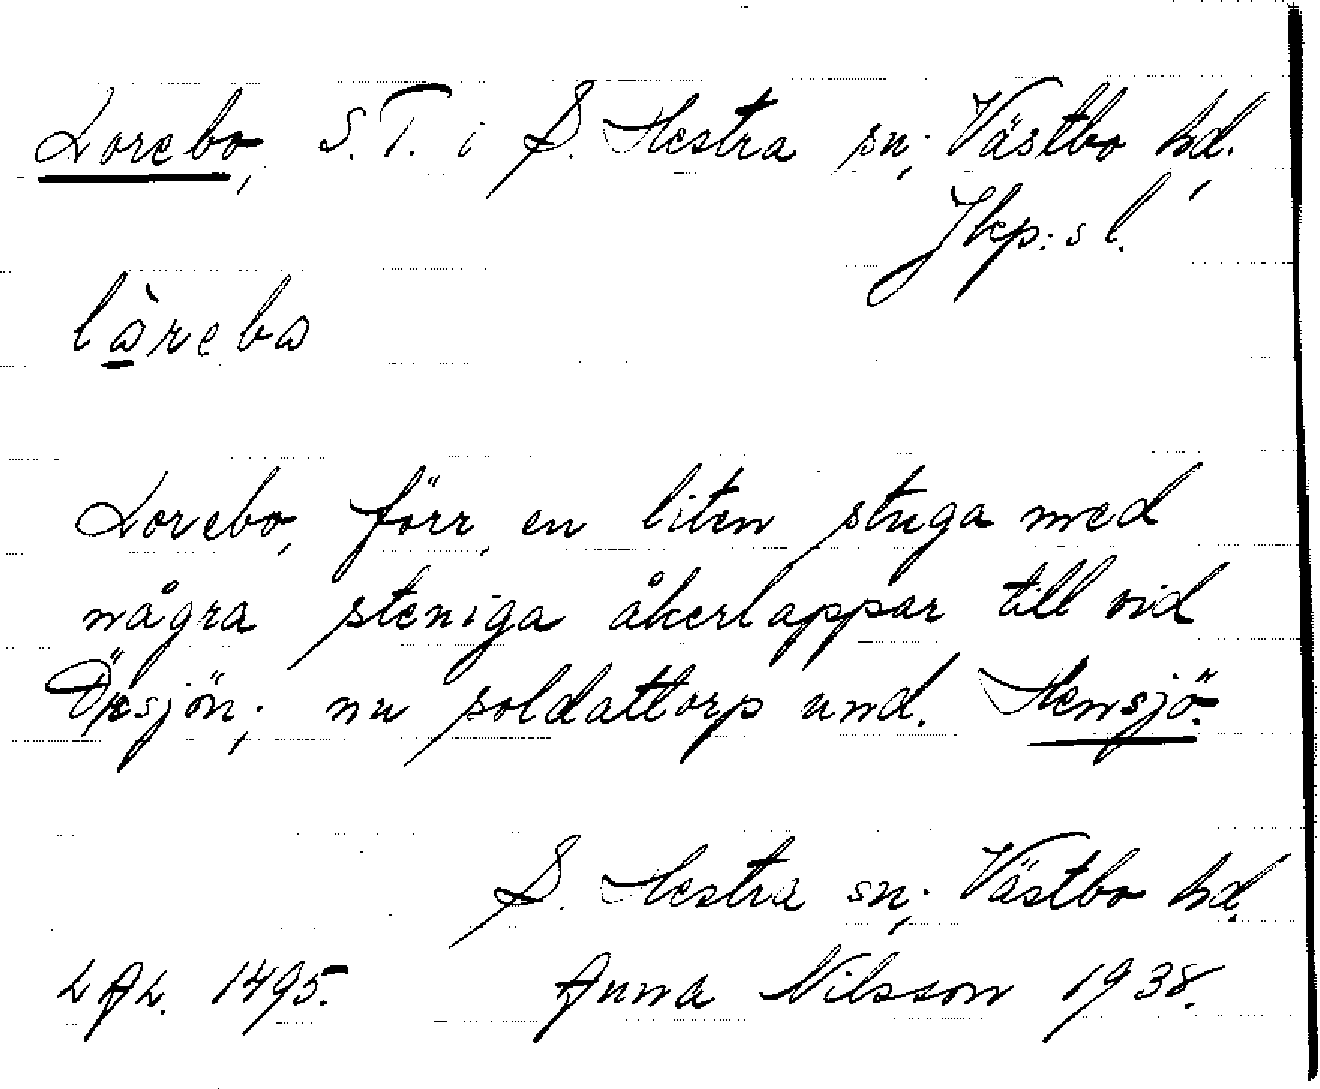 Lorebo, S.T. i S. Hestra sn; Västbo hd,
Jkp:s l.
làrebo
Lorebo, förr, en liten stuga med
några steniga åkerlappar till vid
Örsjön; nu soldattorp und. Hemsjö.
S. Hestra sn; Västbo hd.
LAL. 1495. Anna Nilsson 1938.